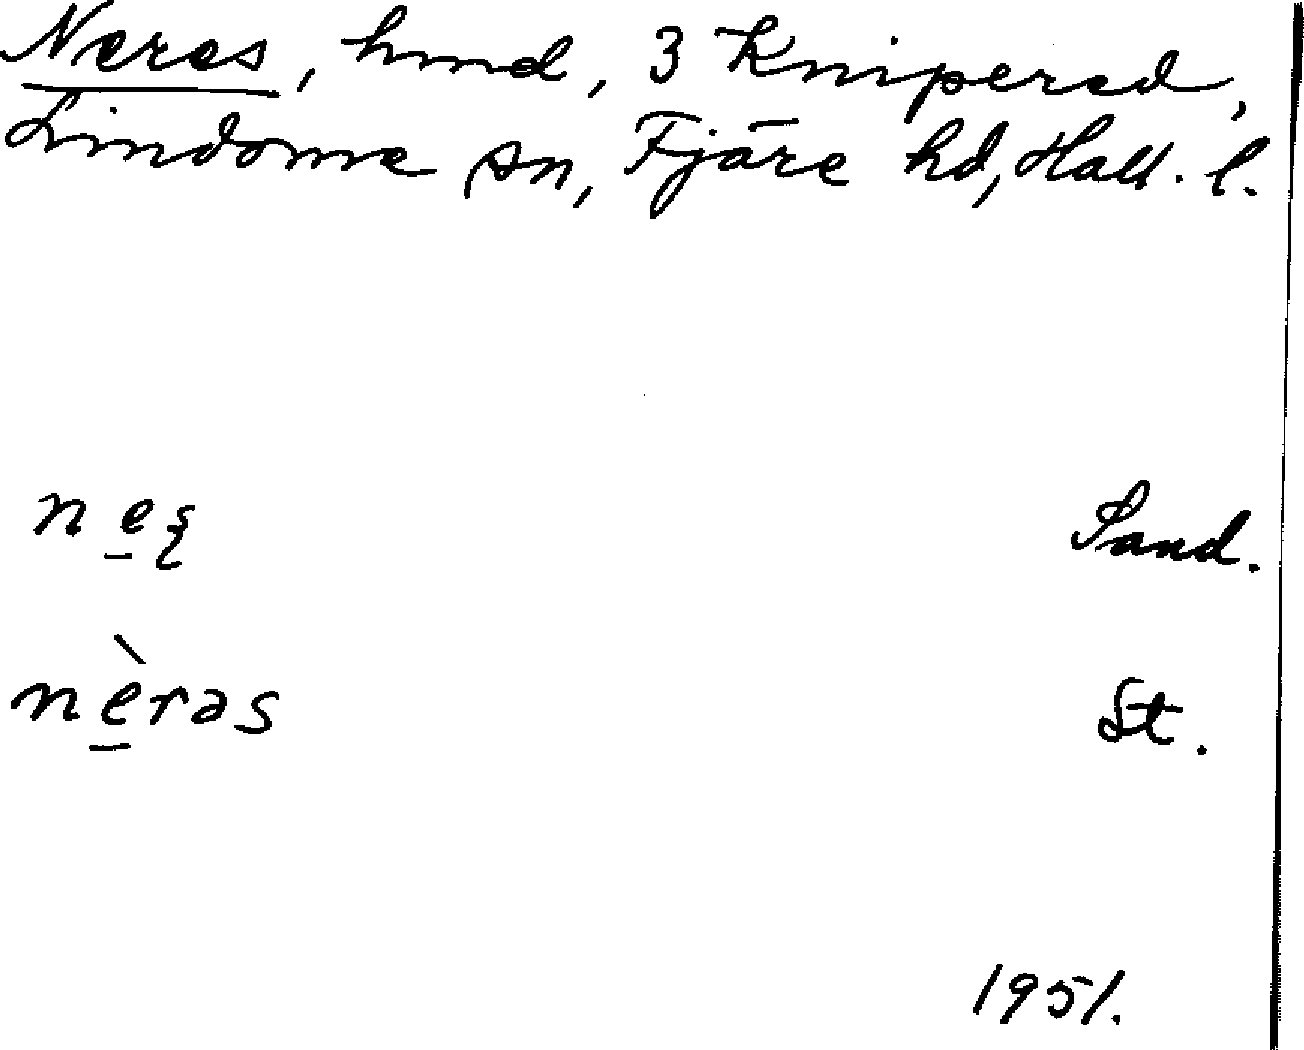 Neres, hmd, 3 Knipered,
Lindome sn, Fjäre hd, Hall. l.
Sand.
nèrəs St.
1951.